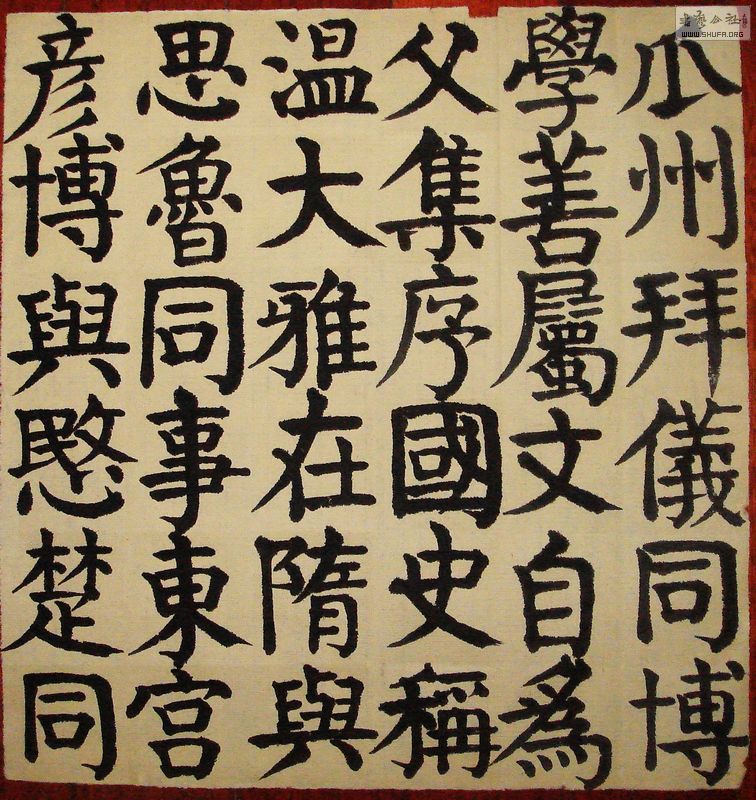 瓜州拜儀同博
學善屬文自爲
父集序國史稱
温大雅在隋與
思魯同事東宮
彦博與愍楚同
書藝公社
WWW.SHUFA.ORG